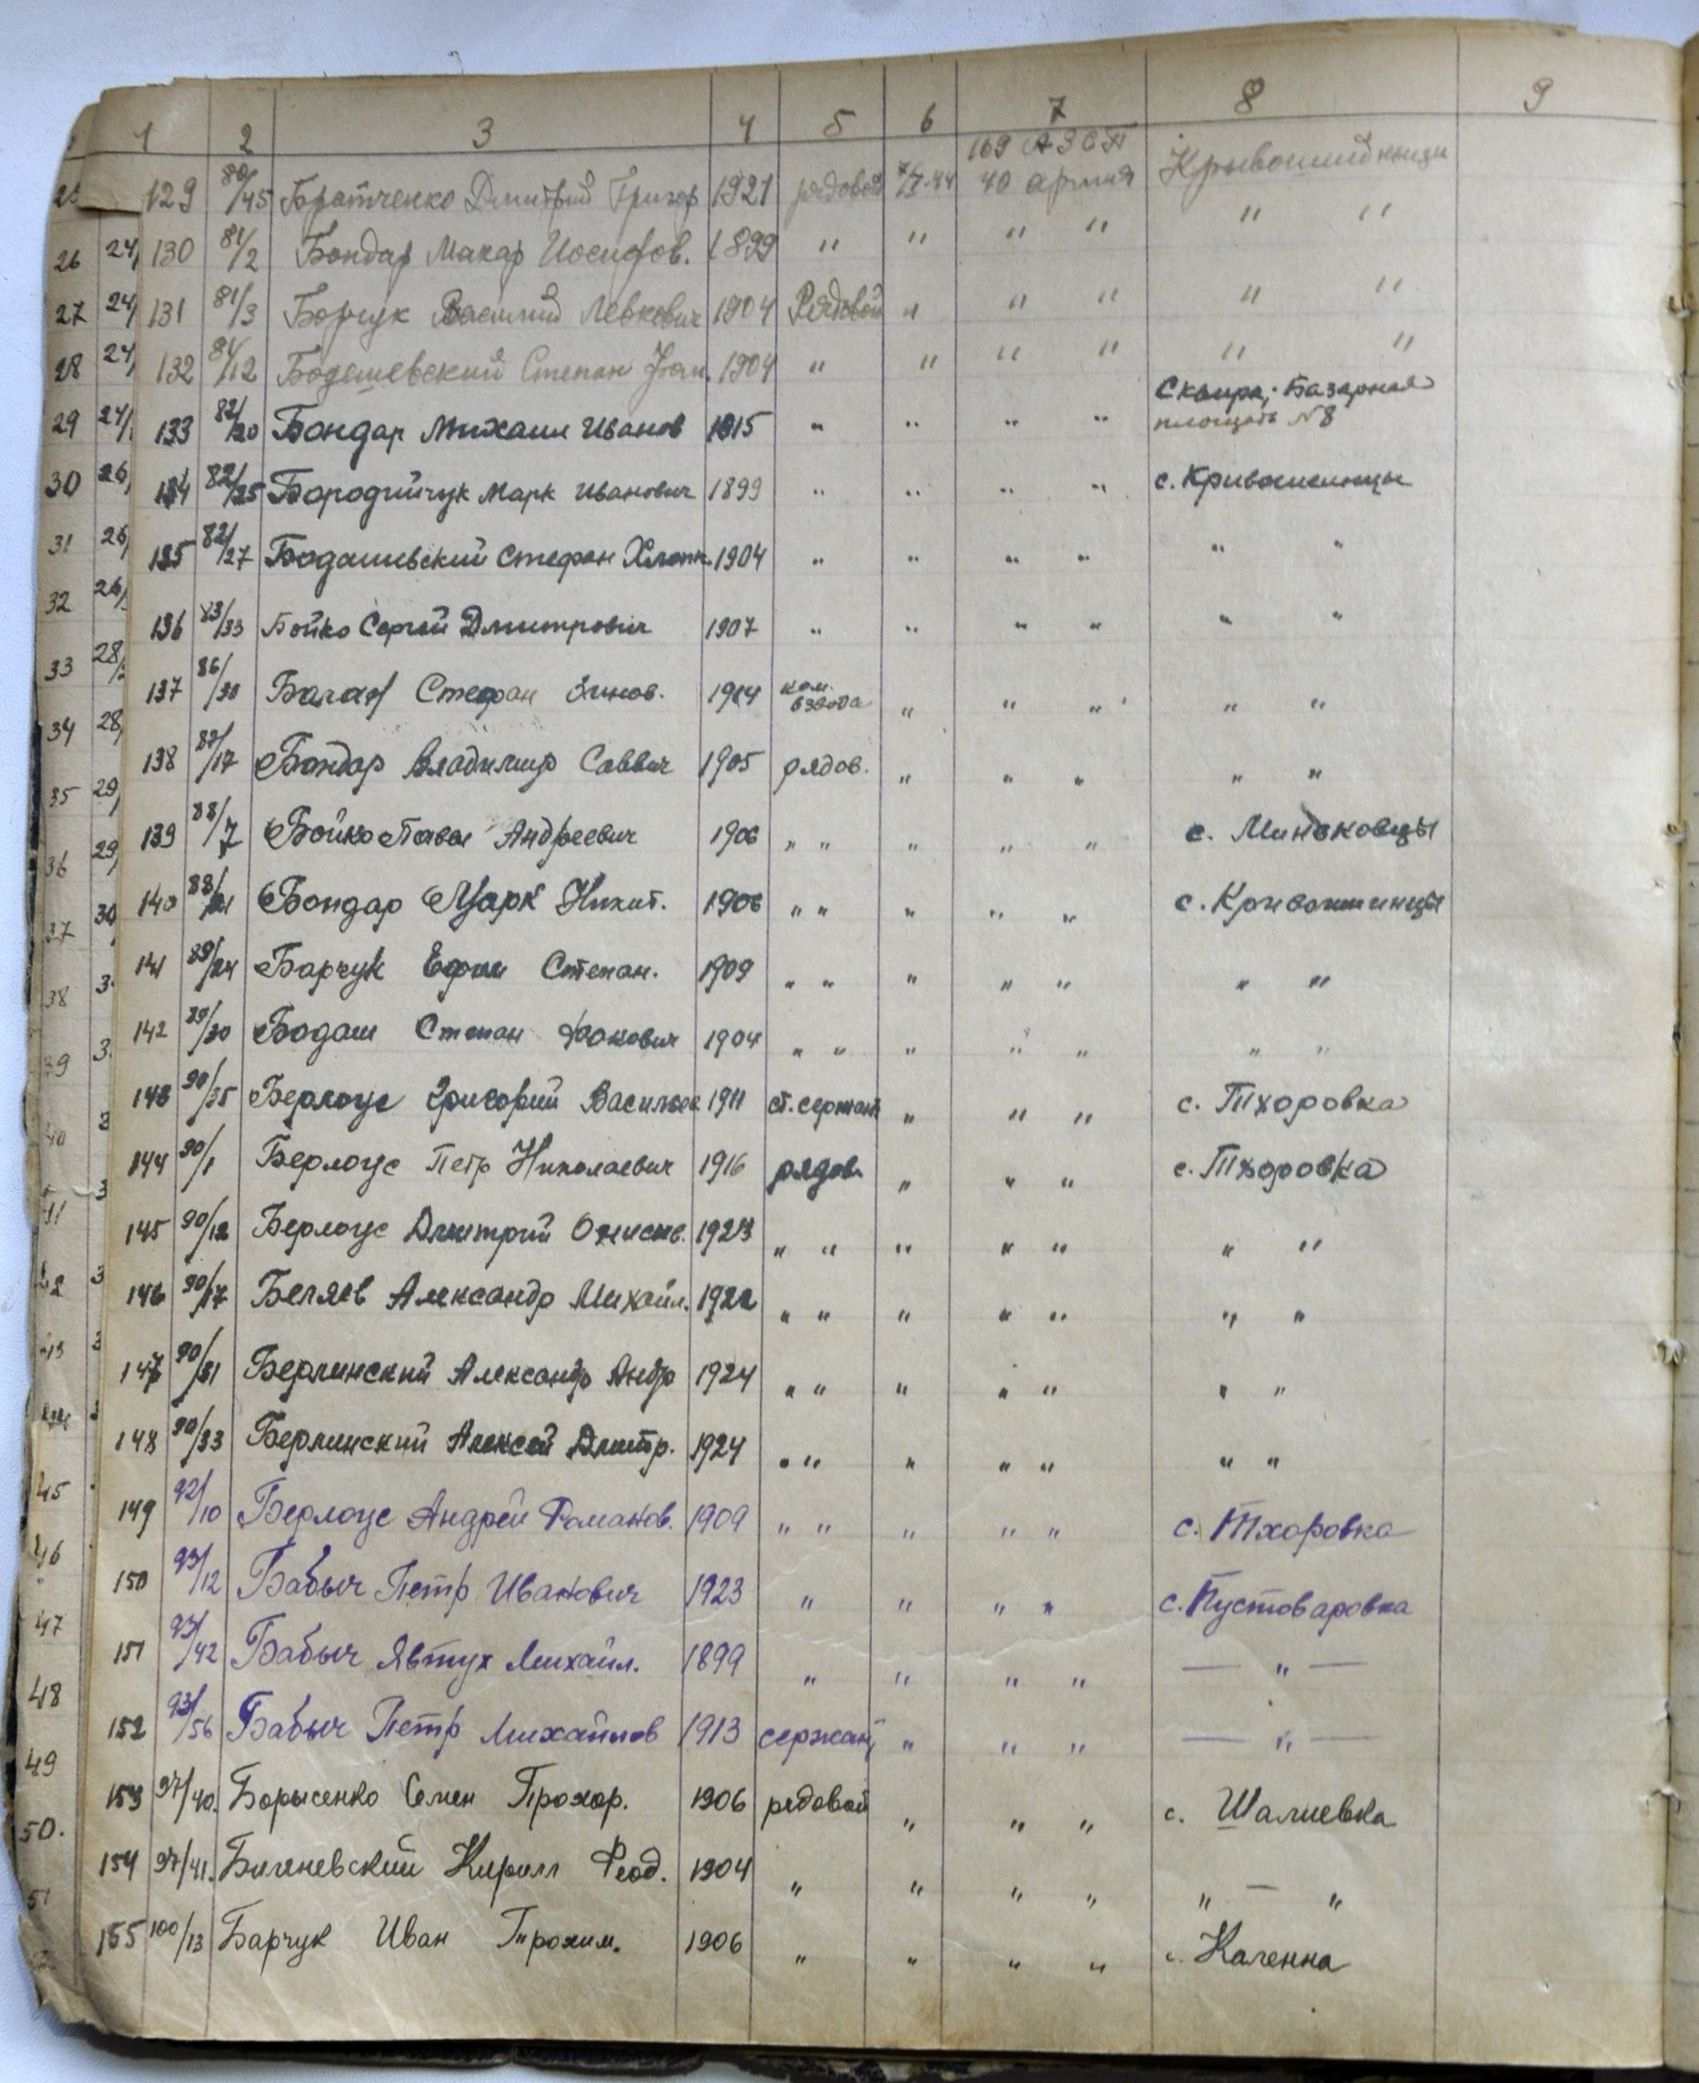 1 2 3 4 5 6 7 8 9
129 80/45 Братченко Дмитрий Григор 1921 рядовой 7/I-44 169 АЗСП 40 армия
26 24/ 130 81/2 Бондар Макар Иосифов. 1899 " " " " " "
27 24/ 131 81/3 Борчук Василий Левкович 1904 Рядовой " " " " "
28 24/ 132 81/12 Бодашевский Степан 1904 " " " " " "
Сквира, Базарная
29 24/ 133 82/20 Бондар Михаил Иванов 1915 " " " " площадь №8
30 26/ 134 82/25 Бородийчук Марк Иванович 1899 " " " " с. Кривошеинцы
31 26/ 135 82/27 Бодашивский Стефан 1904 " " " " " "
32 26/ 136 83/33 Бойко Сергей Дмитрович 1907 " " " " " "
33 28/ 137 86/30 Стефан Зинов. 1914 ком. взвода " " " " "
34 28/ 138 87/17 Бондар Владимир Саввич 1905 рядов. " " " " "
35 29/ 139 88/7 Бойко Павел Андреевич 1906 " " " " " с. Миньковцы
36 29/ 140 88/21 Бондар Марк Никит. 1906 " " " " " с. Кривошинцы
37 30/ 141 89/24 Барчук Ефим Степан. 1909 " " " " " " "
38 3 142 89/30 Бодаш Степан Фокович 1904 " " " " " " "
39 3 143 90/35 Берлоус Григорий Васильев 1911 ст. сержант " " " с. Тхоровка
40 3 144 90/1 Берлоус Петр Николаевич 1916 рядов. " " " с. Тхоровка
41 3 145 90/12 Берлоус Дмитрий 1923 " " " " " " "
42 3 146 90/17 Беляев Александр Михайл. 1922 " " " " " " "
43 3 147 90/31 Берлинский Александр Андр 1924 " " " " " " "
44 148 90/33 Берлинский Алексей Дмитр. 1924 " " " " " " "
45 149 92/10 Берлоус Андрей Романов. 1909 " " " " " с. Тхоровка
46 150 93/12 Бабыч Петр Иванович 1923 " " " " с. Пустоваровка
47 151 93/42 Бабыч Явтух Михайл. 1899 " " " " — " —
48 152 93/56 Бабыч Петр Михайлов 1913 сержант " " " — " —
49 153 97/40. Борысенко Семен Прохор. 1906 рядовой " " " с. Шалиевка
50. 154 97/41. Кирилл Феод. 1904 " " " " " — "
51 155 100/13 Барчук Иван Трохим. 1906 " " " " с. Каленна